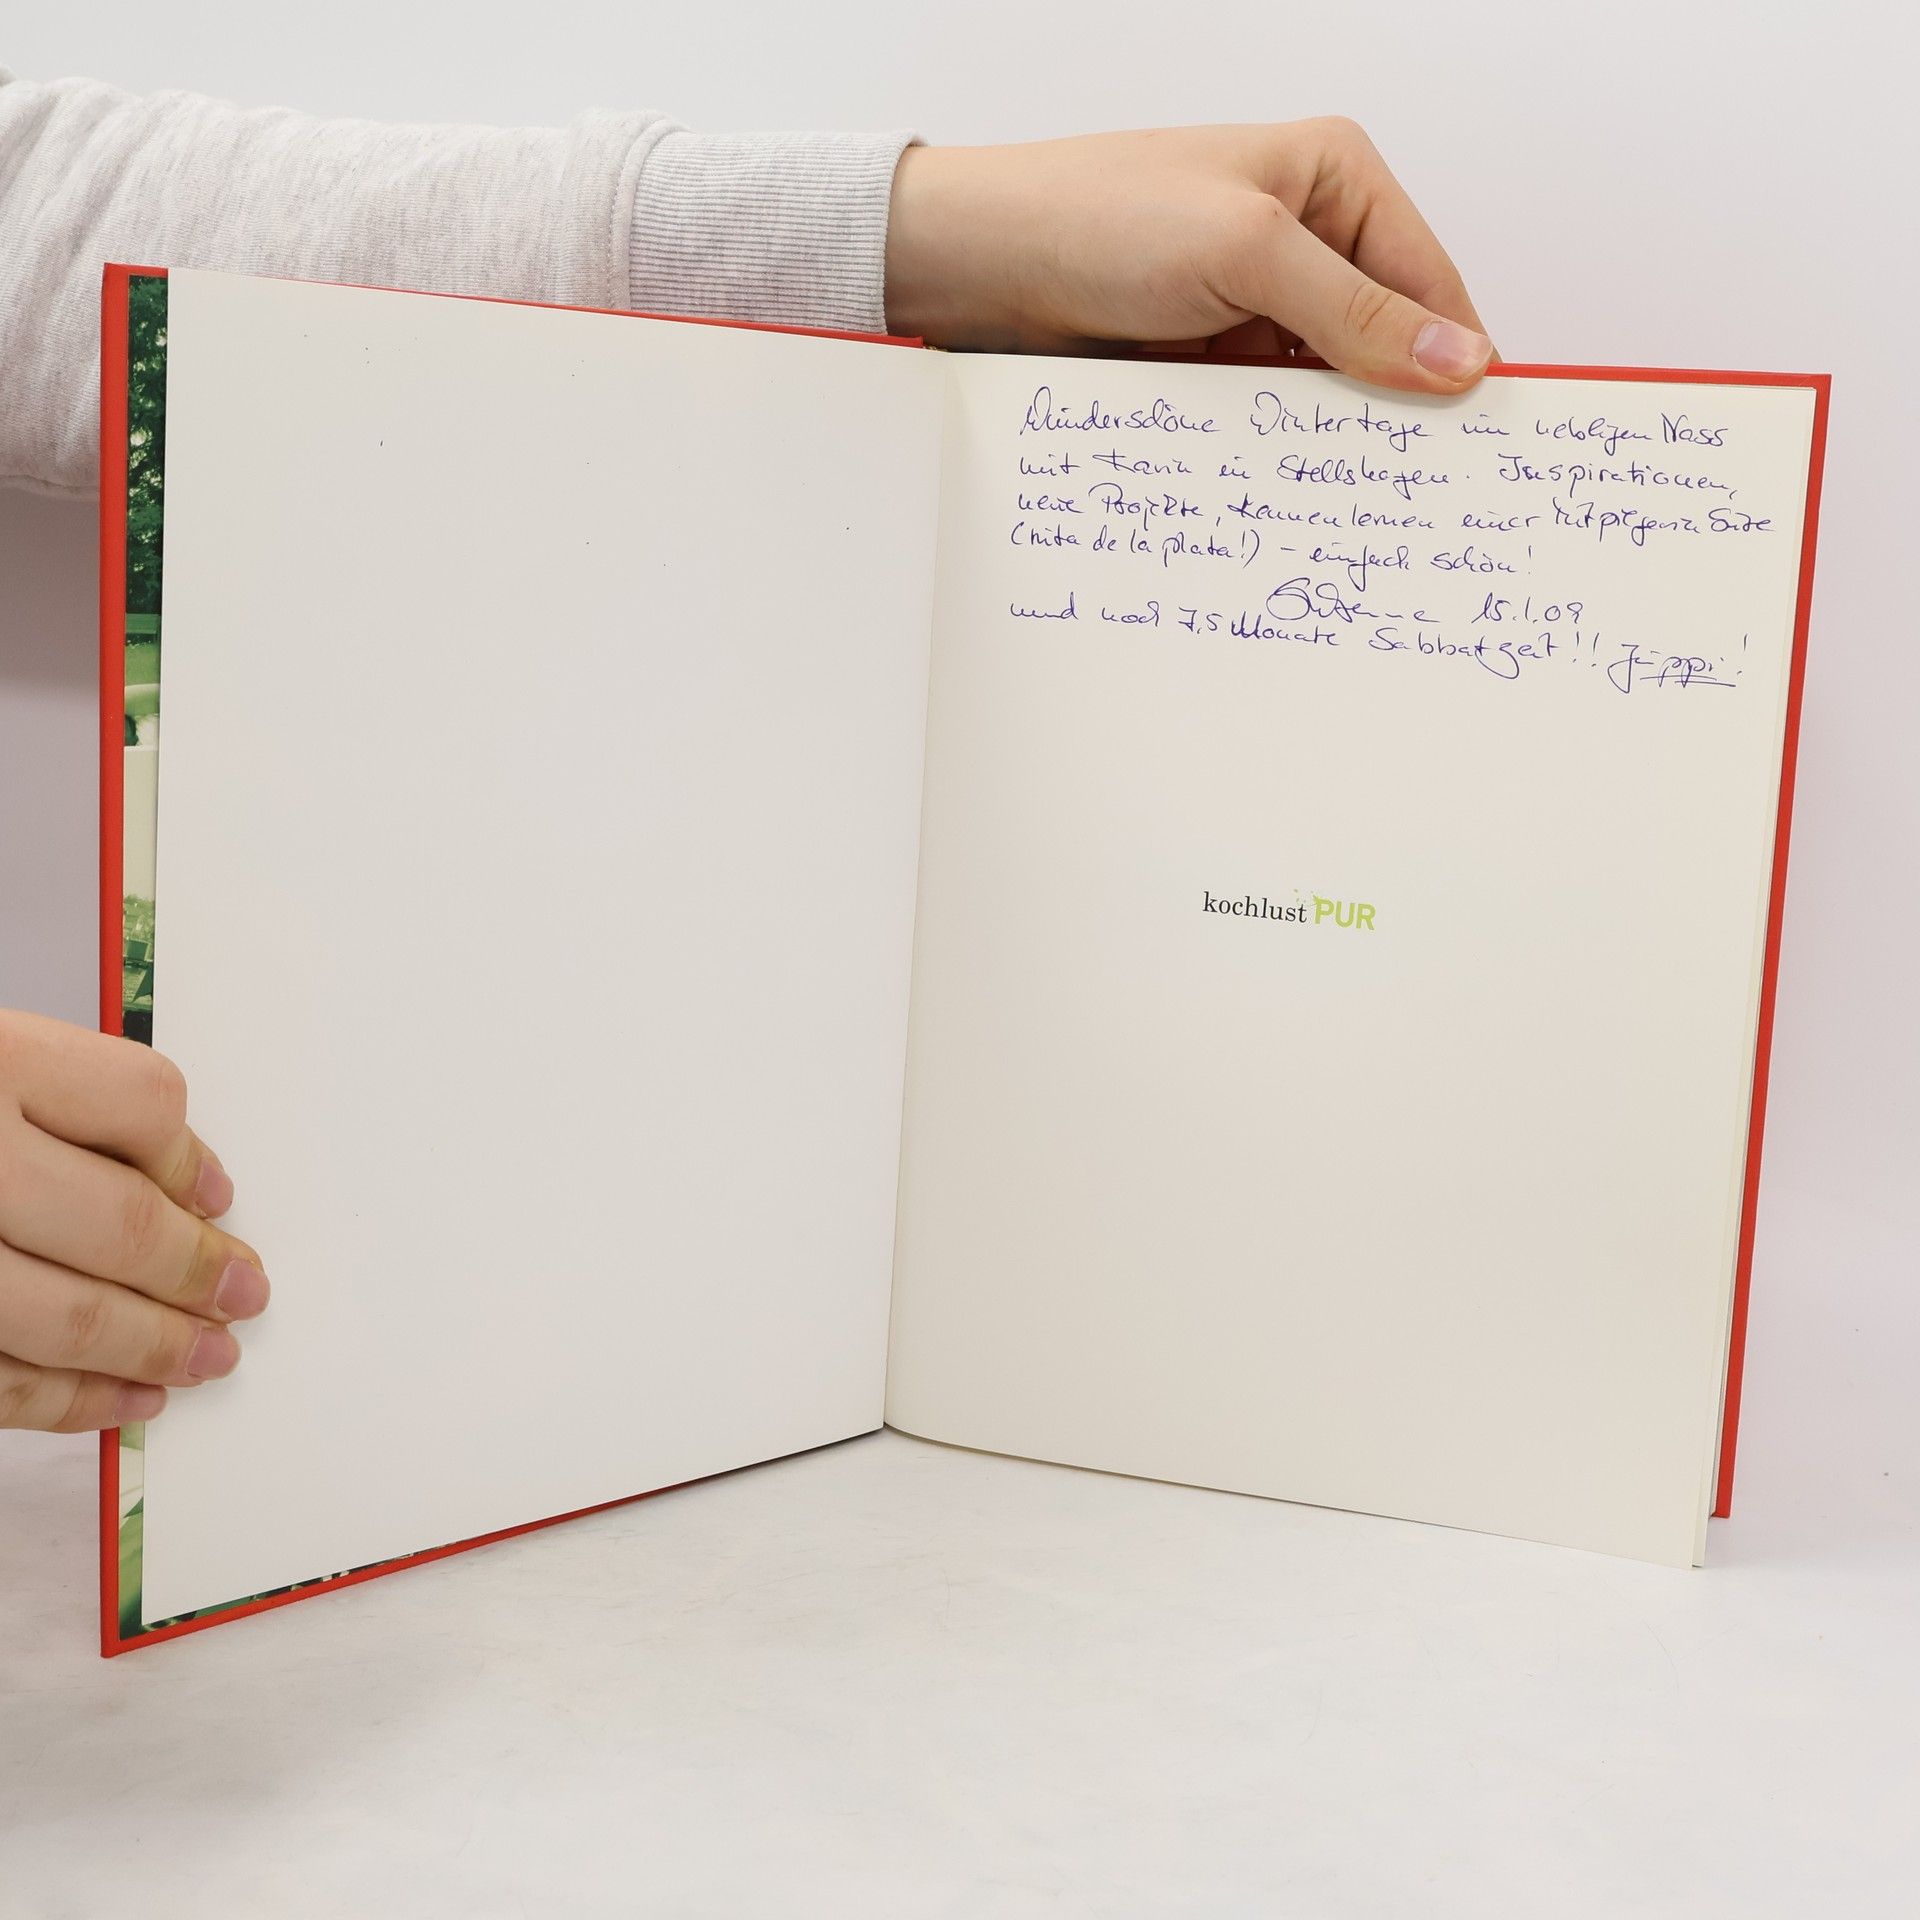 Wunderschöne Wintertage im nebligen Nass
mit Karin in Stellshagen. Inspirationen,
neue Projekte, Kennenlernen einer
(nita de la plata!) – einfach schön!
Susanne 15.1.09
und noch 7,5 Monate Sabbatzeit!! Jüppi!
kochlust PUR